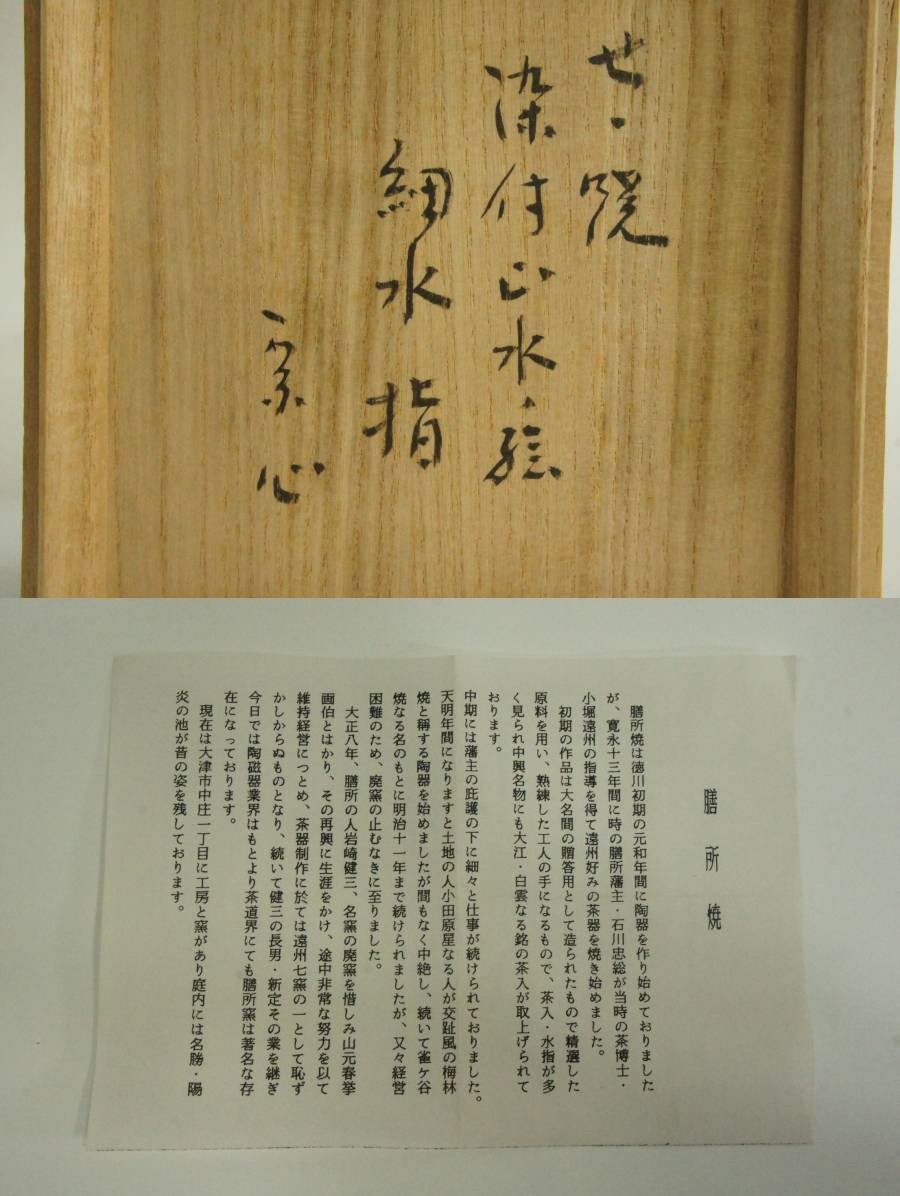 せゝ焼
染付山水ノ絵
細水指
宗心
膳所焼
膳所焼は徳川初期の元和年間に陶器を作り始めておりました
が、寛永十三年間に時の膳所藩主・石川忠総が当時の茶博士・
小堀遠州の指導を得て遠州好みの茶器を焼き始めました。
初期の作品は大名間の贈答用として造られたもので精選した
原料を用い、熟練した工人の手になるもので、茶入・水指が多
く見られ中興名物にも大江・白雲なる銘の茶入が取上げられて
おります。
中期には藩主の庇護の下に細々と仕事が続けられておりました。
天明年間になりますと土地の人小田原屋なる人が交趾風の梅林
焼と稱する陶器を始めましたが間もなく中絶し、続いて雀ヶ谷
焼なる名のもとに明治十一年まで続けられましたが、又々経営
困難のため、廃窯の止むなきに至りました。
大正八年、膳所の人岩崎健三、名窯の廃窯を惜しみ山元春挙
画伯とはかり、その再興に生涯をかけ、途中非常な努力を以て
維持経営につとめ、茶器制作に於ては遠州七窯の一として恥ず
かしからぬものとなり、続いて健三の長男・新定その業を継ぎ
今日では陶磁器業界はもとより茶道界にても膳所窯は著名な存
在になっております。
現在は大津市中庄一丁目に工房と窯があり庭内には名勝・陽
炎の池が昔の姿を残しております。